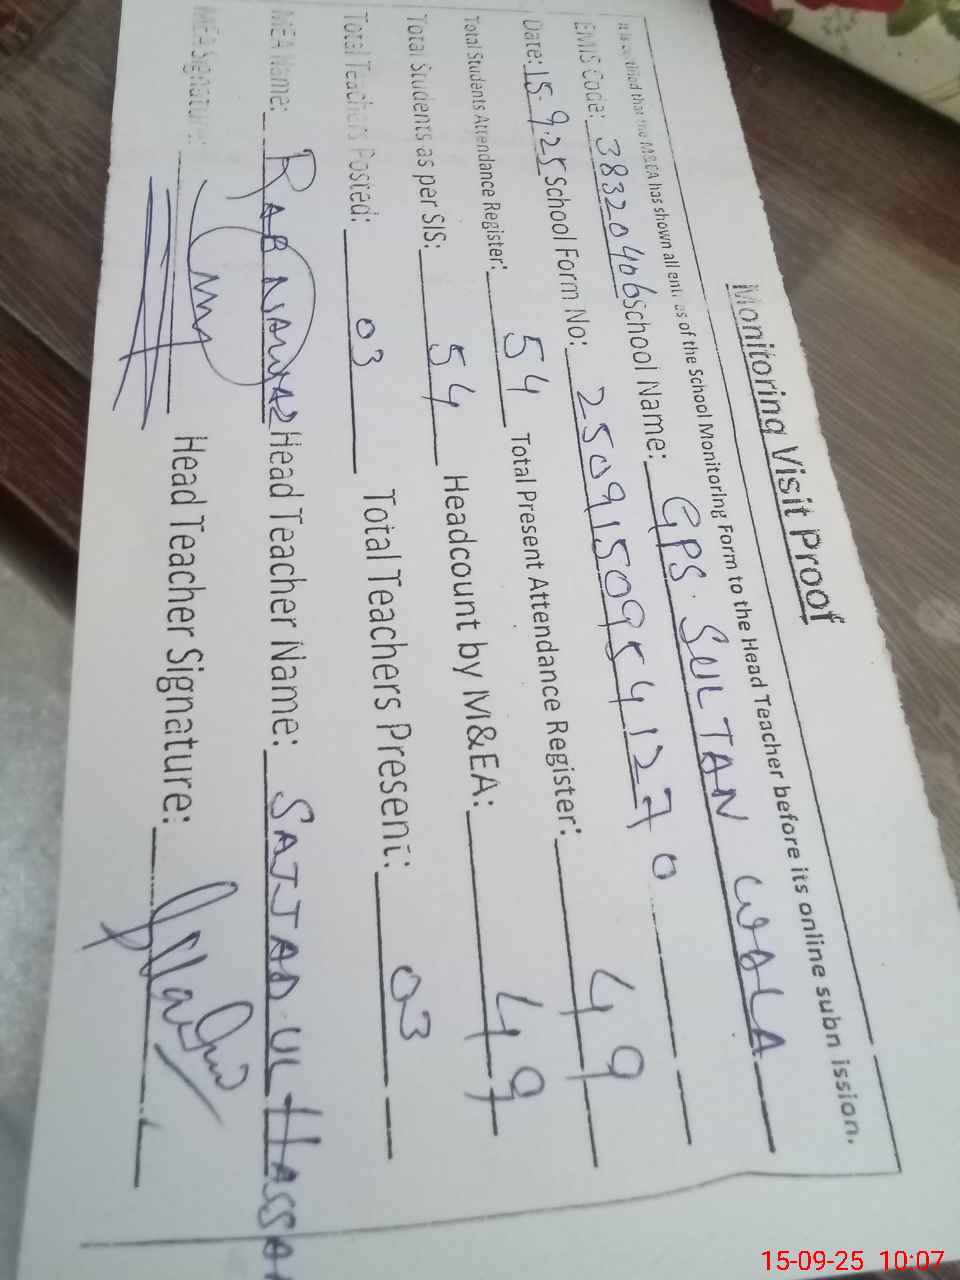 Monitoring Visit Proof
It is certified that the M&EA has shown all entries of the School Monitoring Form to the Head Teacher before its online submission.
EMIS Code: 38320406 School Name: GPS. SULTAN WALA
Date: 15.9.25 School Form No: 25091509541270
Total Students Attendance Register: 54 Total Present Attendance Register: 49
Total Students as per SIS: 54 Headcount by M&EA: 49
Total Teachers Posted: 03 Total Teachers Present: 03
MEA Name: RAB NAWAZ Head Teacher Name: SAJJAD UL HASSAN
MEA Signature: Head Teacher Signature:
15-09-25 10:07